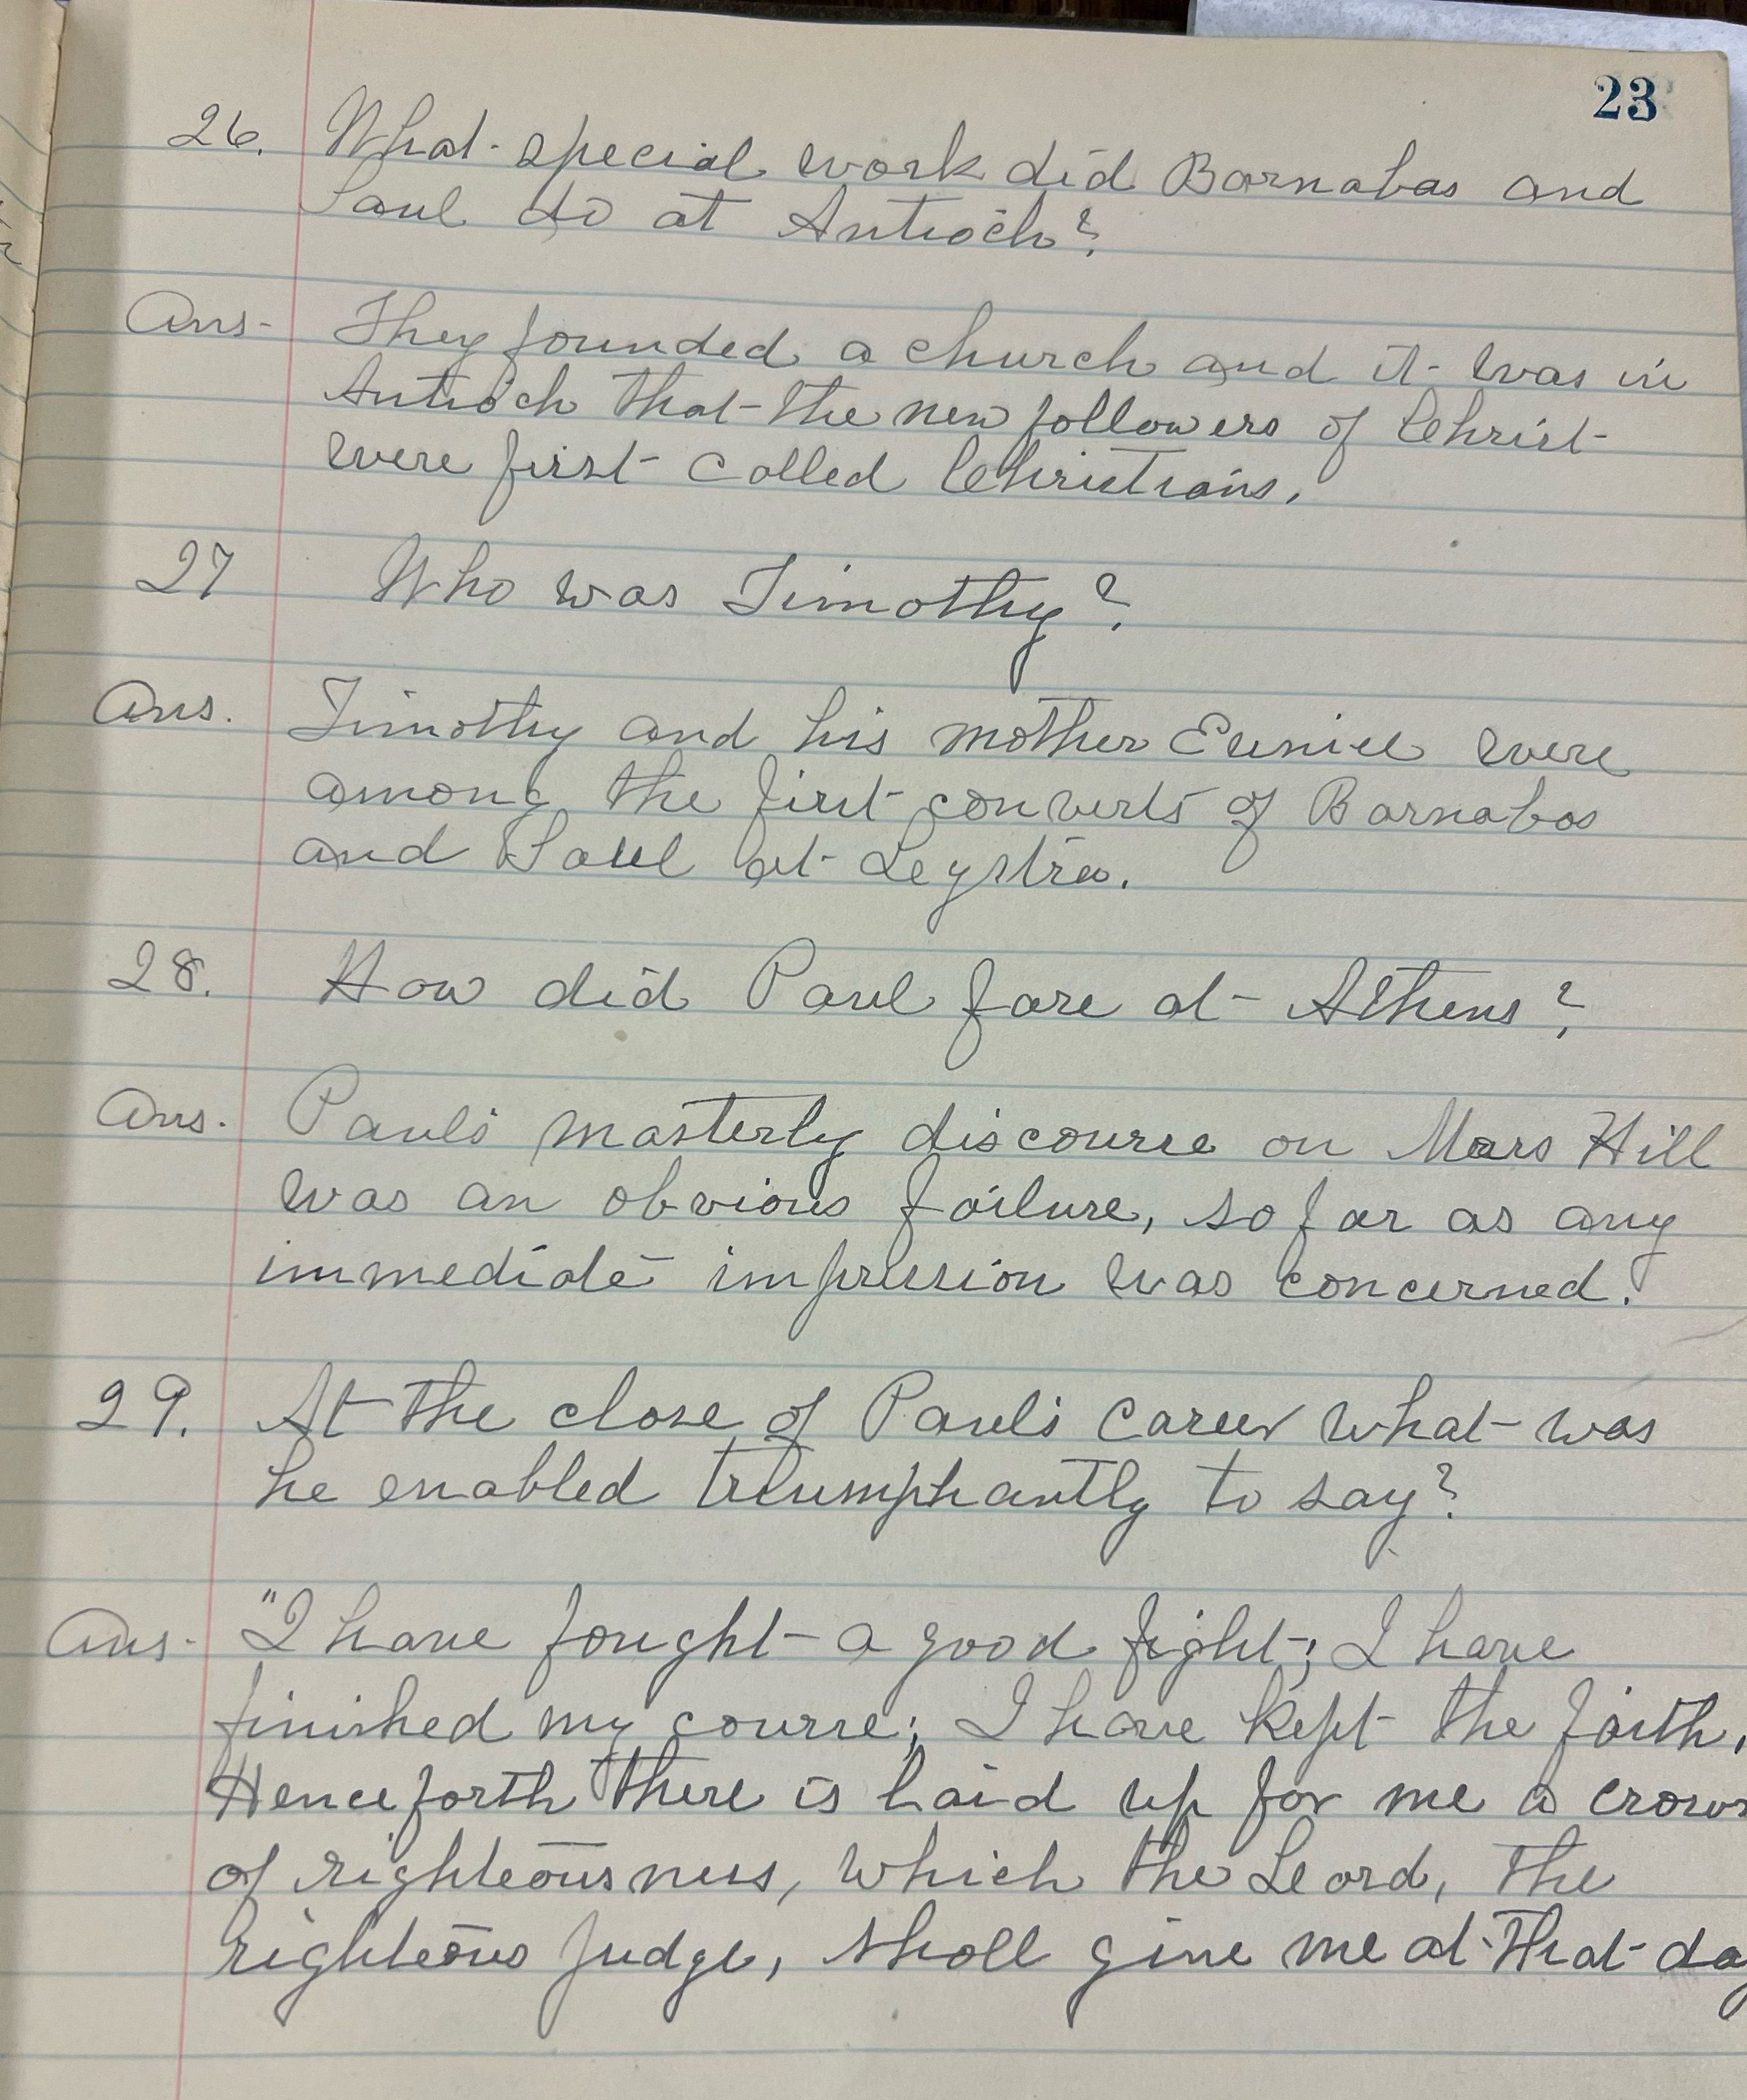 23
26. What special work did Barnabas and
Saul do at Antioch?
Ans- They founded a church and it was in
Antioch that the new followers of Christ
were first called Christians.
27 Who was Timothy?
Ans. Timothy and his mother Eunice were
among the first converts of Barnabas
and Saul at Lystra.
28. How did Paul fare at Athens?
Ans. Paul's masterly discourse on Mars Hill
was an obvious failure, so far as any
immediate impression was concerned.
29. At the close of Paul's career what was
he enabled triumphantly to say?
Ans- "I have fought a good fight; I have
finished my course; I have kept the faith.
Henceforth there is laid up for me a crown
of righteousness, which the Lord, the
righteous judge, shall give me at that day